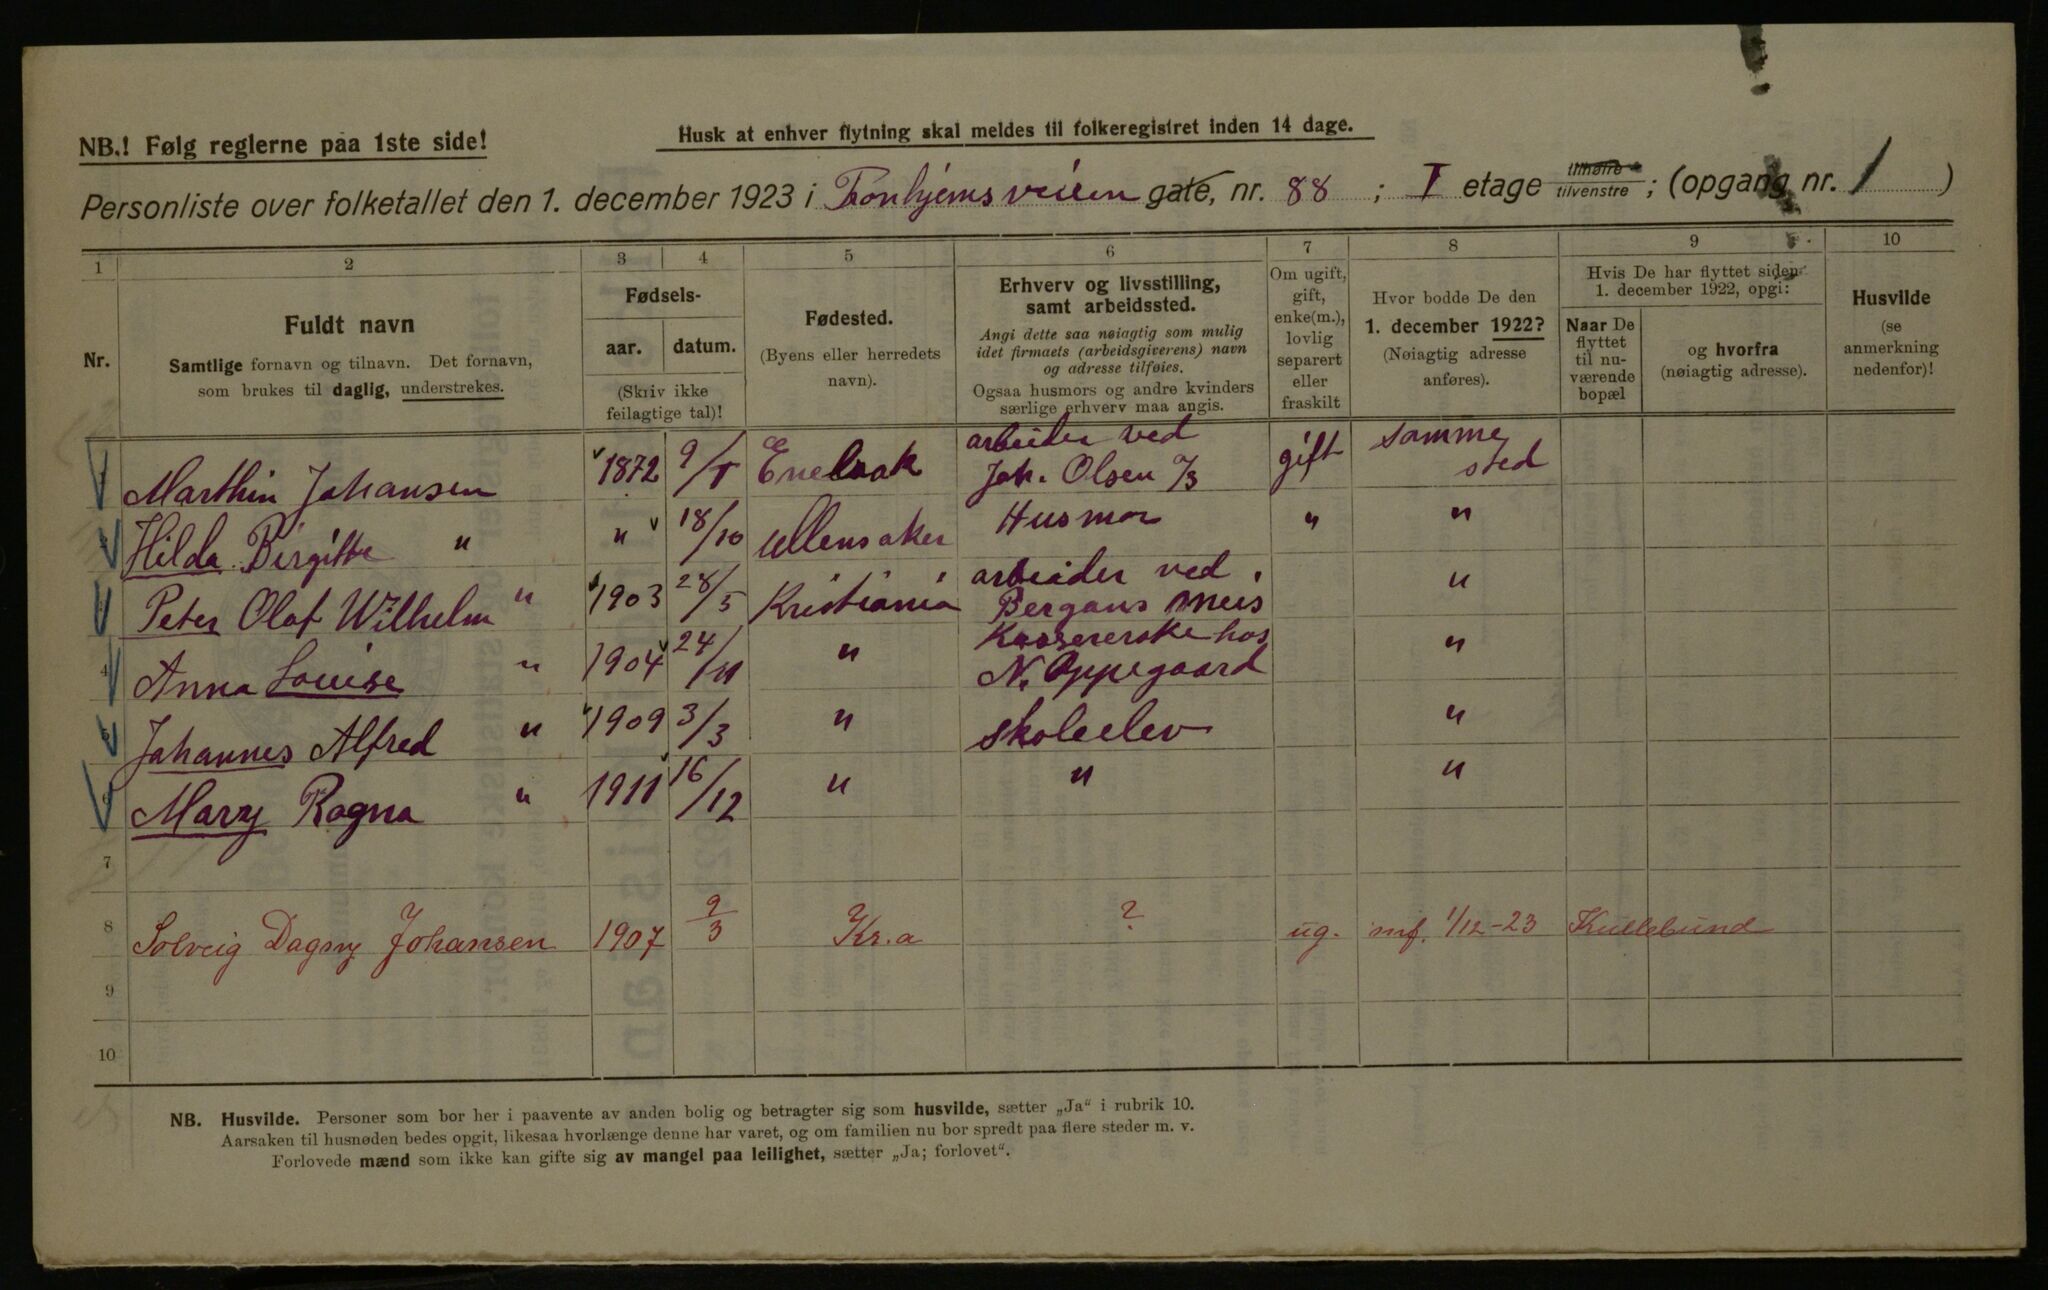 NB.! Følg reglerne paa 1ste side!
Husk at enhver flytning skal meldes til folkeregistret inden 14 dage.
Personliste over folketallet den 1. december 1923 i Tronhjemsveien gate, nr. 88 ; I etage tilhøire tilvenstre ; (opgang nr. 1 )
1 2 3 4 5 6 7 8 9 10
Nr.
Fuldt navn
Samtlige fornavn og tilnavn. Det fornavn,
som brukes til daglig, understrekes.
Fødsels-
aar. datum.
(Skriv ikke
feilagtige tal)!
Fødested.
(Byens eller herredets
navn).
Erhverv og livsstilling,
samt arbeidssted.
Angi dette saa nøiagtig som mulig
idet firmaets (arbeidsgiverens) navn
og adresse tilføies.
Ogsaa husmors og andre kvinders
særlige erhverv maa angis.
Om ugift,
gift,
enke(m.),
lovlig
separert
eller
fraskilt
Hvor bodde De den
1. december 1922?
(Nøiagtig adresse
anføres).
Hvis De har flyttet siden
1. december 1922, opgi:
Naar De
flyttet
til nu-
værende
bopæl
og hvorfra
(nøiagtig adresse).
Husvilde
(se
anmerkning
nedenfor)!
Marthin Johansen 1872 9/1 Enebak arbeider ved Joh. Olsen gift samme sted
Hilda Birgitte " " 18/10 Ullensaker Husmor " "
Peter Olaf Wilhelm " 1903 28/5 Kristiania arbeider ved Bergans meis "
4 Anna Louise " 1904 24/11 " Kassererske hos N. Oppegaard "
5 Johannes Alfred " 1909 3/3 " skoleelev "
6 Mary Ragna " 1911 16/12 " " "
7
8 Solveig Dagny Johansen 1907 9/3 Kr.a ? ug. mf. 1/12-23 Kullebund
9
10
NB. Husvilde. Personer som bor her i paavente av anden bolig og betragter sig som husvilde, sætter „Ja“ i rubrik 10.
Aarsaken til husnøden bedes opgit, likesaa hvorlænge denne har varet, og om familien nu bor spredt paa flere steder m. v.
Forlovede mænd som ikke kan gifte sig av mangel paa leilighet, sætter „Ja; forlovet“.